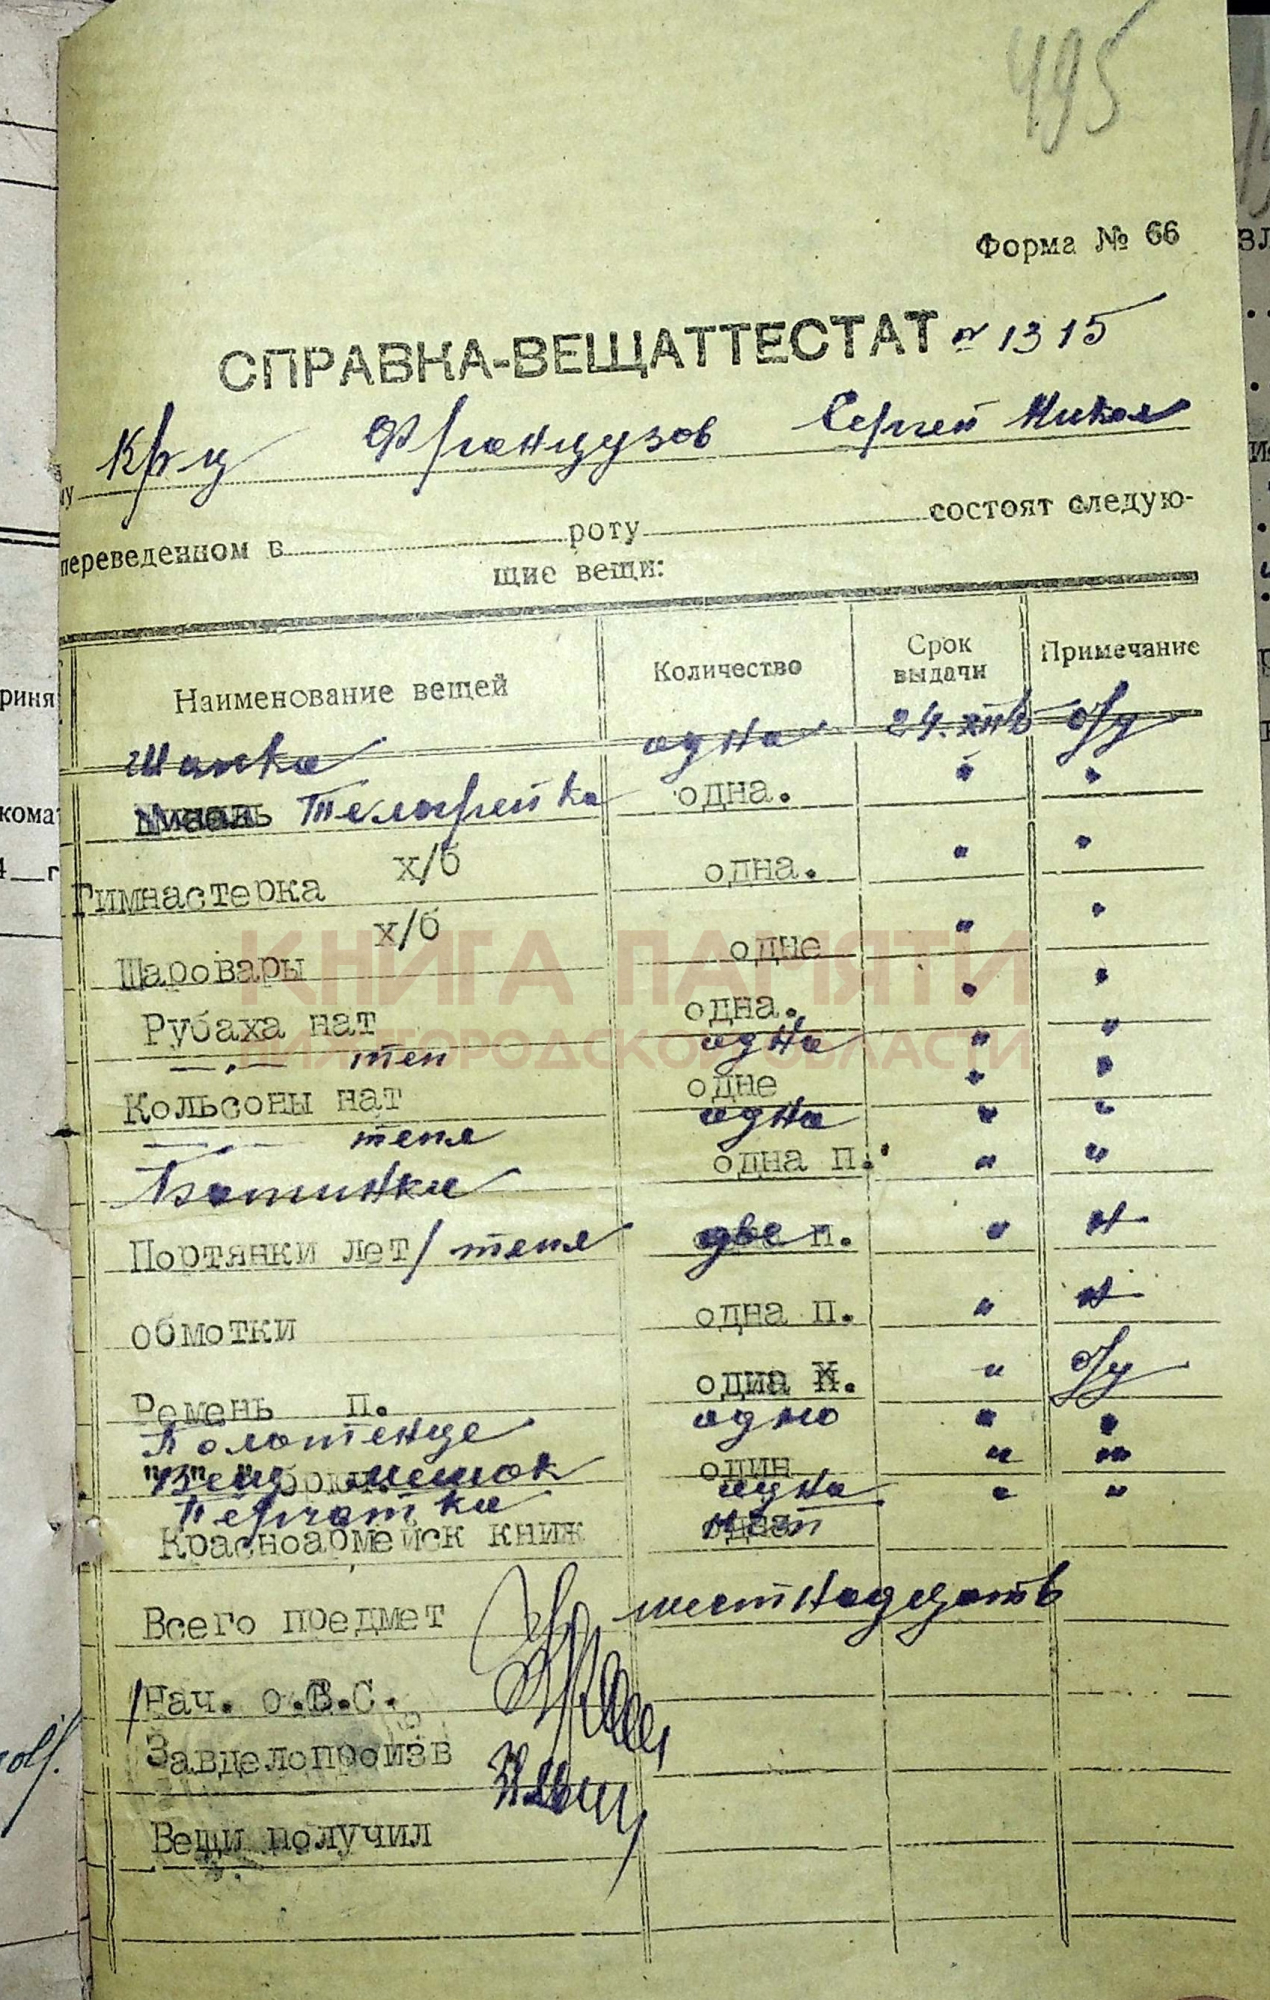 495
Форма № 66
СПРАВКА-ВЕЩАТТЕСТАТ № 1315
Кр-ц Французов Сергей Никол
переведенном в роту состоят следую-
щие вещи:
Наименование вещей Количество Срок выдачи Примечание
Шапка одна 24.XII б/у
Телогрейка одна. " "
Гимнастерка х/б одна. " "
Шаровары х/б одне " "
Рубаха нат одна. " "
—"— теп одна " "
Кольсоны нат одне " "
—"— тепл одна " "
Ботинки одна п. " "
Портянки лет/тепл две п. " н
обмотки одна п. " н
Ремень п. один " б/у
Полотенце одно " "
Вещ мешок один " "
Перчатки одна " "
Красноармейск книж нет
Всего предмет шестнадцать
Нач. О.В.С.
Завделопроизв
Вещи получил
КНИГА ПАМЯТИ
НИЖЕГОРОДСКОЙ ОБЛАСТИ